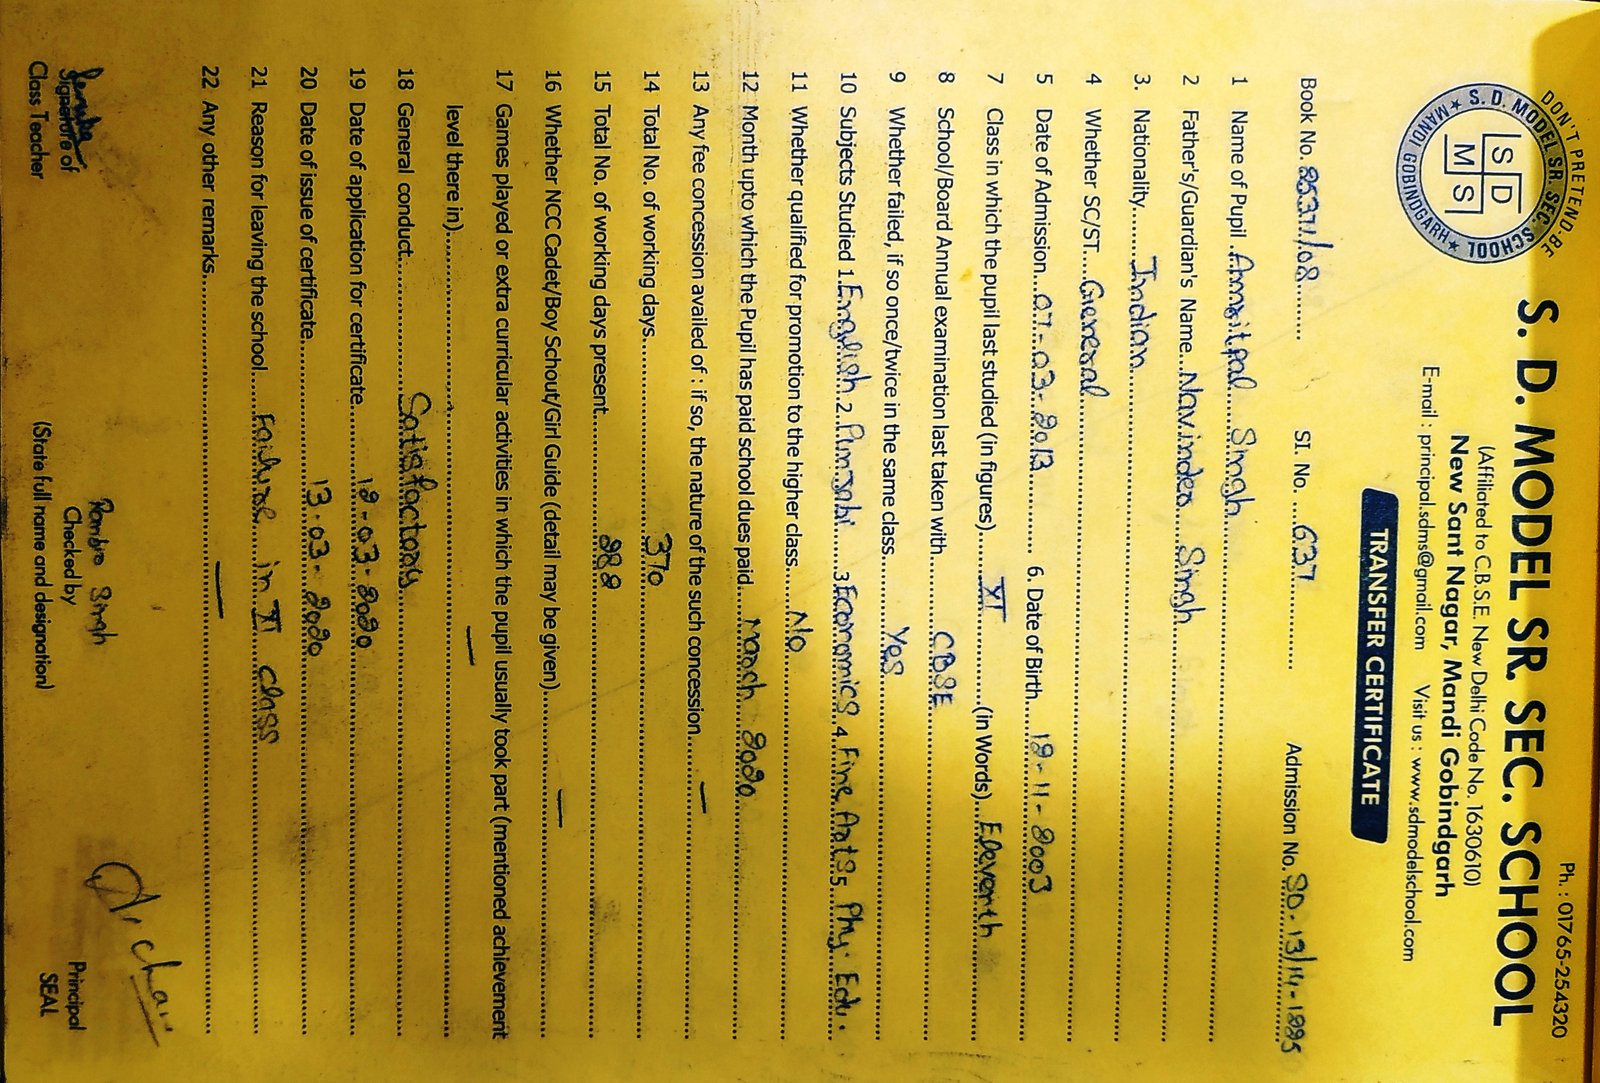 Ph. : 01765-254320
DON'T PRETEND-BE
S. D. MODEL SR. SEC. SCHOOL
MANDI GOBINDGARH
S D
M S
S. D. MODEL SR. SEC. SCHOOL
(Affiliated to C.B.S.E. New Delhi Code No. 1630610)
New Sant Nagar, Mandi Gobindgarh
E-mail : principal.sdms@gmail.com Visit us : www.sdmodelschool.com
TRANSFER CERTIFICATE
Book No. 8537/08 SI. No. 637 Admission No. SD-13/14-1995
1 Name of Pupil Amritpal Singh
2 Father's/Guardian's Name Navinder Singh
3. Nationality Indian
4 Whether SC/ST General
5 Date of Admission 07-03-2013 6. Date of Birth 12-11-2003
7 Class in which the pupil last studied (in figures) XI (in Words) Eleventh
8 School/Board Annual examination last taken with CBSE
9 Whether failed, if so once/twice in the same class Yes
10 Subjects Studied 1. English 2. Punjabi 3. Economics 4. Fine Arts 5. Phy. Edu.
11 Whether qualified for promotion to the higher class No
12 Month upto which the Pupil has paid school dues paid March 2020
13 Any fee concession availed of : if so, the nature of the such concession —
14 Total No. of working days 370
15 Total No. of working days present 288
16 Whether NCC Cadet/Boy Schout/Girl Guide (detail may be given) —
17 Games played or extra curricular activities in which the pupil usually took part (mentioned achievement
level there in) —
18 General conduct Satisfactory
19 Date of application for certificate 12-03-2020
20 Date of issue of certificate 13-03-2020
21 Reason for leaving the school Failure in XI class
22 Any other remarks —
Singh
Signature of Checked by Principal
Class Teacher (State full name and designation) SEAL